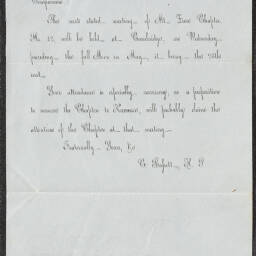 Companions
The next stated meeting of Mt. Zion Chapter
No. 15 will be held at Brandridge's, on Wednesday
preceding the full Moon in May, it being the 24th
inst.
Your attendance is especially necessary, as a proposition
to remove the Chapter to Kenmuir, will probably claim the
attention of the Chapter at that meeting.
Fraternally Yours, &c
H. P.